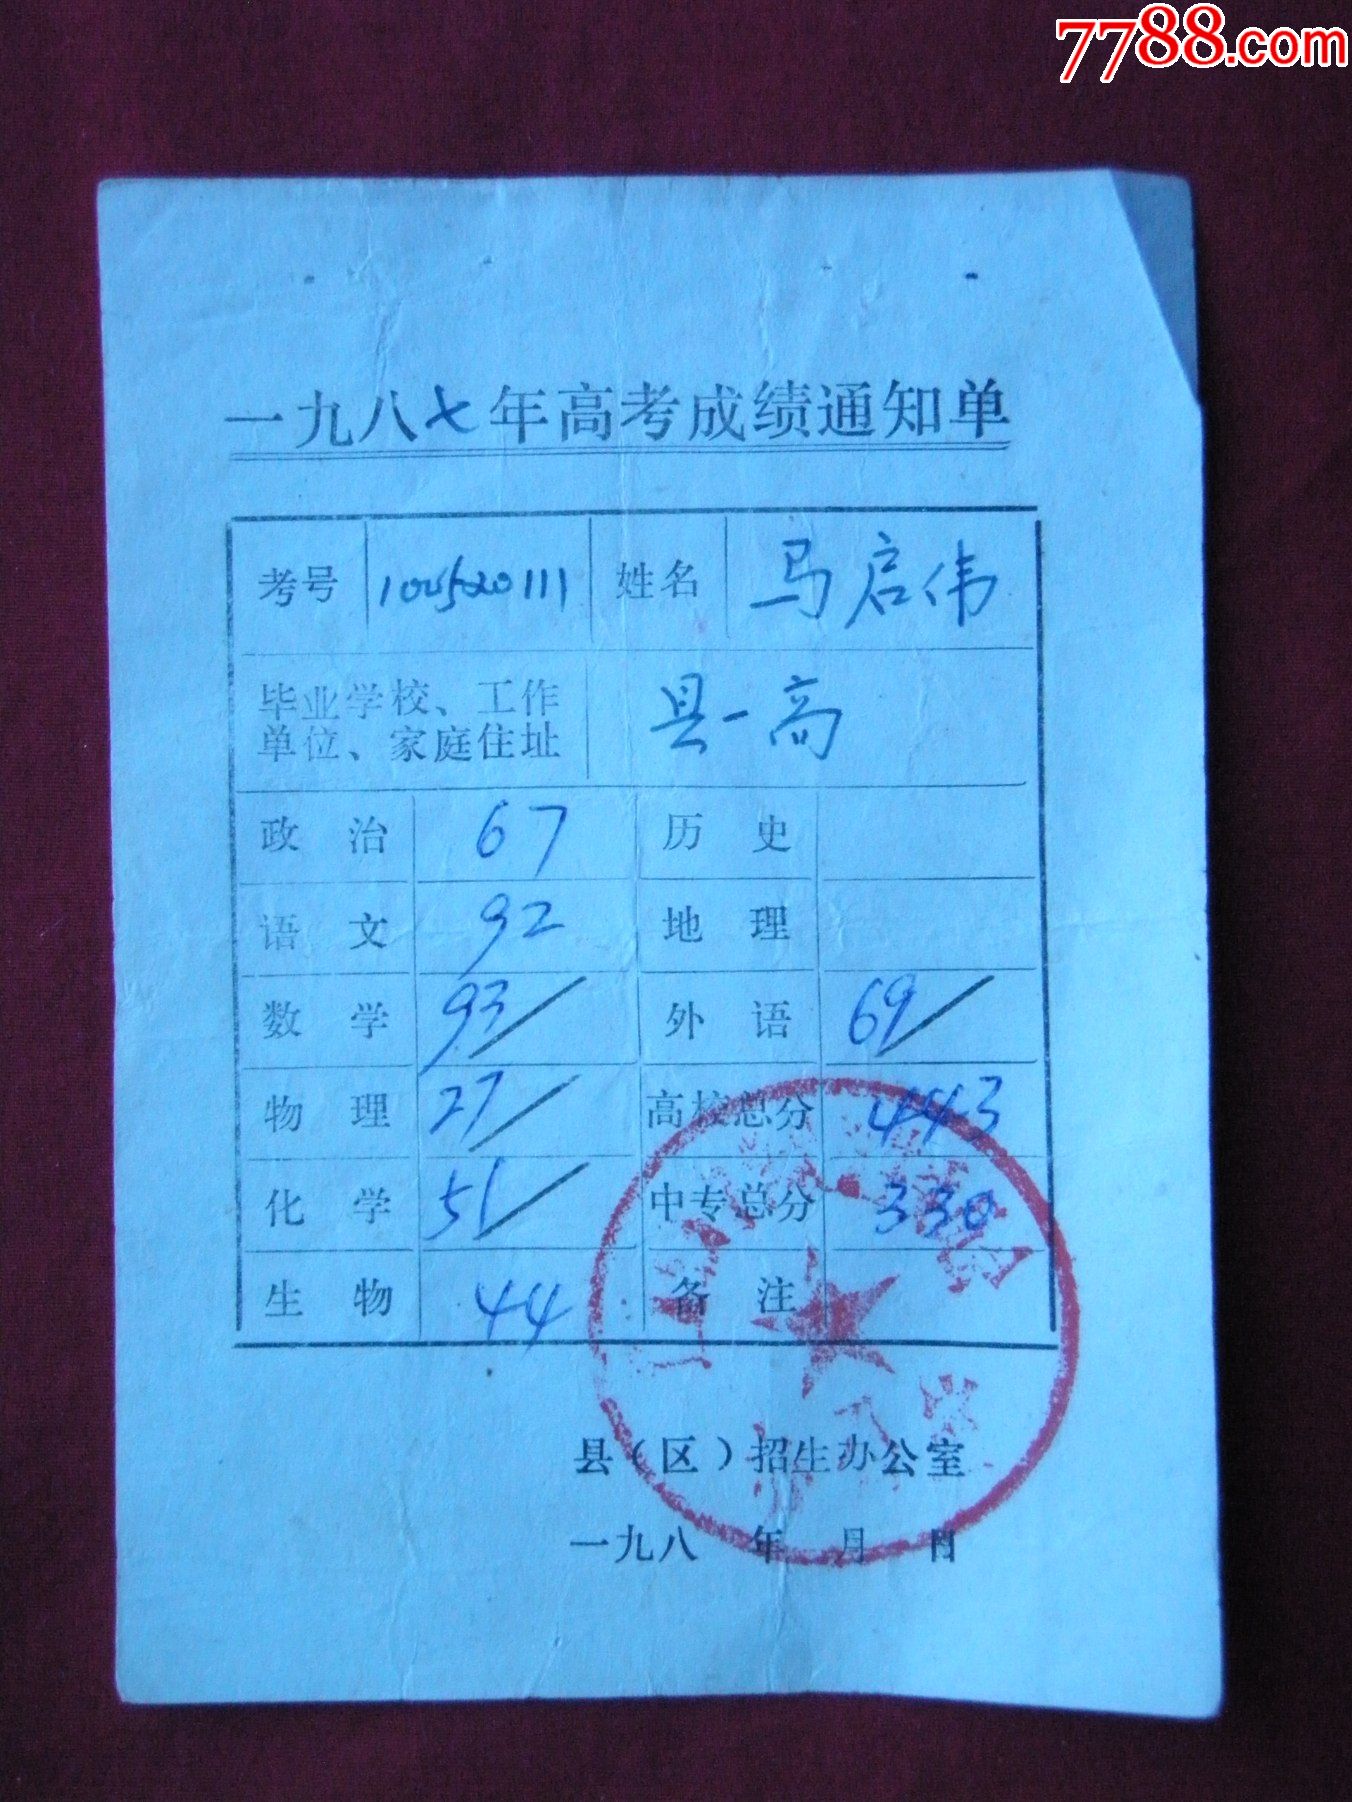 7788.com
一九八七年高考成绩通知单
考号 100520111 姓名 马启伟
毕业学校、工作
单位、家庭住址
县一高
政治 67 历史
语文 92 地理
数学 93/ 外语 69/
物理 27/ 高校总分 443
化学 51/ 中专总分 330
生物 44 备注
县（区）招生办公室
一九八 年 月 日